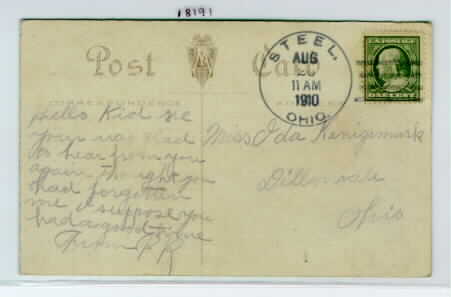 18191
Post Card
STEEL,
AUG
11 AM
1910
OHIO.
U.S. POSTAGE
ONE CENT
CORRESPONDENCE
Hello Kid
your was glad
to hear from you
again thought you
had forgotten
me I suppose you
had a good time
From
Miss Ida
Dillonvale
Ohio